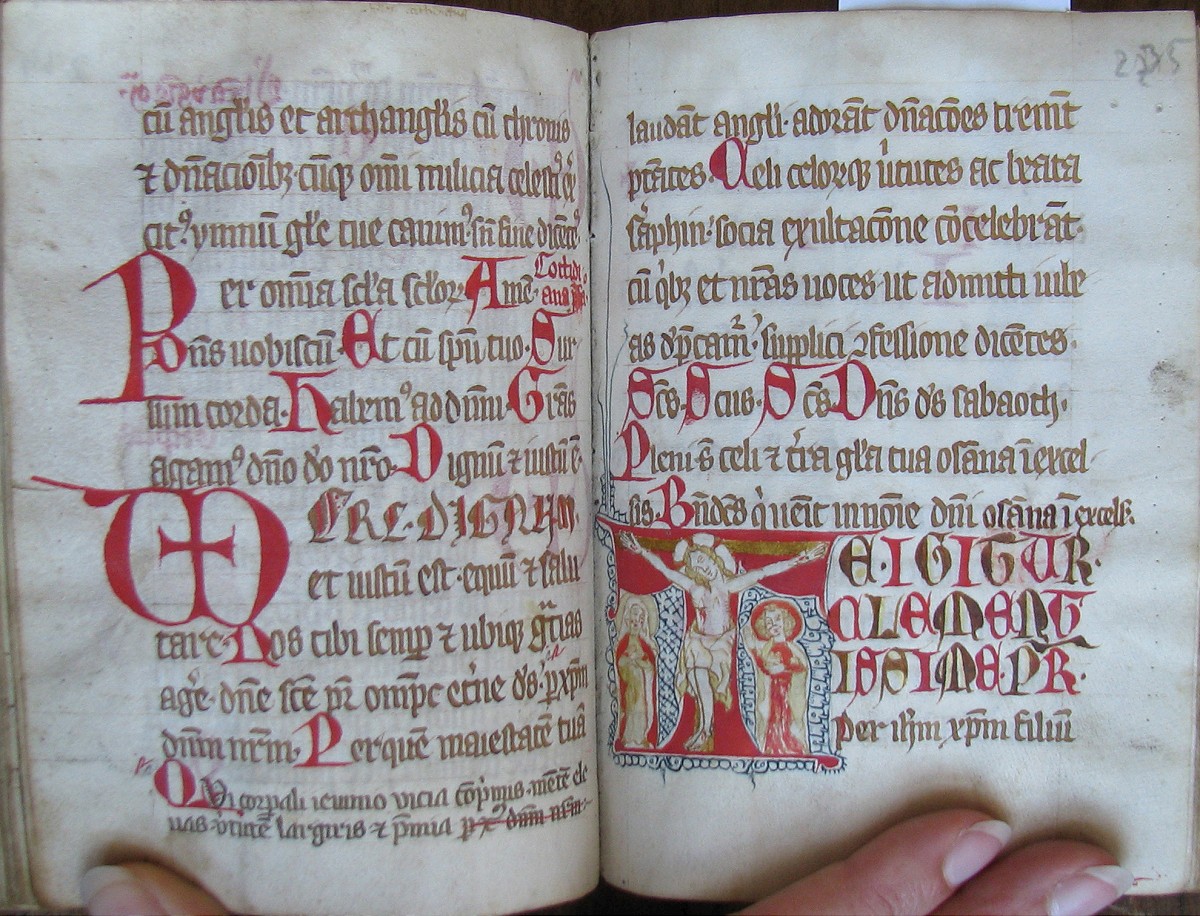 cū angl̄is et archangl̄is cū thronis
⁊ dn̄acioībꝫ cūqꝫ om̄i milicia celestꝰ exꝰ
citꝰ ymnū gl̄e tue canimꝰ sn̄ fine dicētꝰ
Per om̄ia scl̄a scl̄oꝝ Amē Cottidi
ana
Dn̄s uobiscū Et cū spū tuo Sur
sum corda Habemꝰ ad dūm Grās
agamꝰ dn̄o dō nr̄o Dignū ⁊ iustū ē
VERE DIGNUM
et iustū est equū ⁊ salu
tare Nos tibi semꝑ ⁊ ubiqꝫ gr̄tias
agē dn̄e scē pr̄ om̄pc et'ne d's ꝑ xp̄m
dūm nr̄m Per quē maiestatē tuā
Qvi corꝑali ieiunio vicia cōp'mis mētē ele
uas v'tutē largiris ⁊ p̄mia ꝑ x̄ dūm nr̄m
235
laudāt angl̄i adorāt dn̄acōes tremūt
ptātes Celi celorqꝫ v'tutes ac beata
s'aphin socia exultacōne cōcelebrāt
cū q'bꝫ et nr̄as uoces ut admitti iube
as dp̄camr̄ supplici ꝯfessione dicētes
Scs̄ Scūs Scs̄ Dn̄s d's sabaoth
Pleni s̄ celi ⁊ t'ra gl̄a tua osāna ī excel
sis Bn̄dcs̄ q' uēit in noīe dn̄i osāna ī excels
TE IGITUR
CLEMENT
ISSIME PR̄
per ih̄m xp̄m filiū